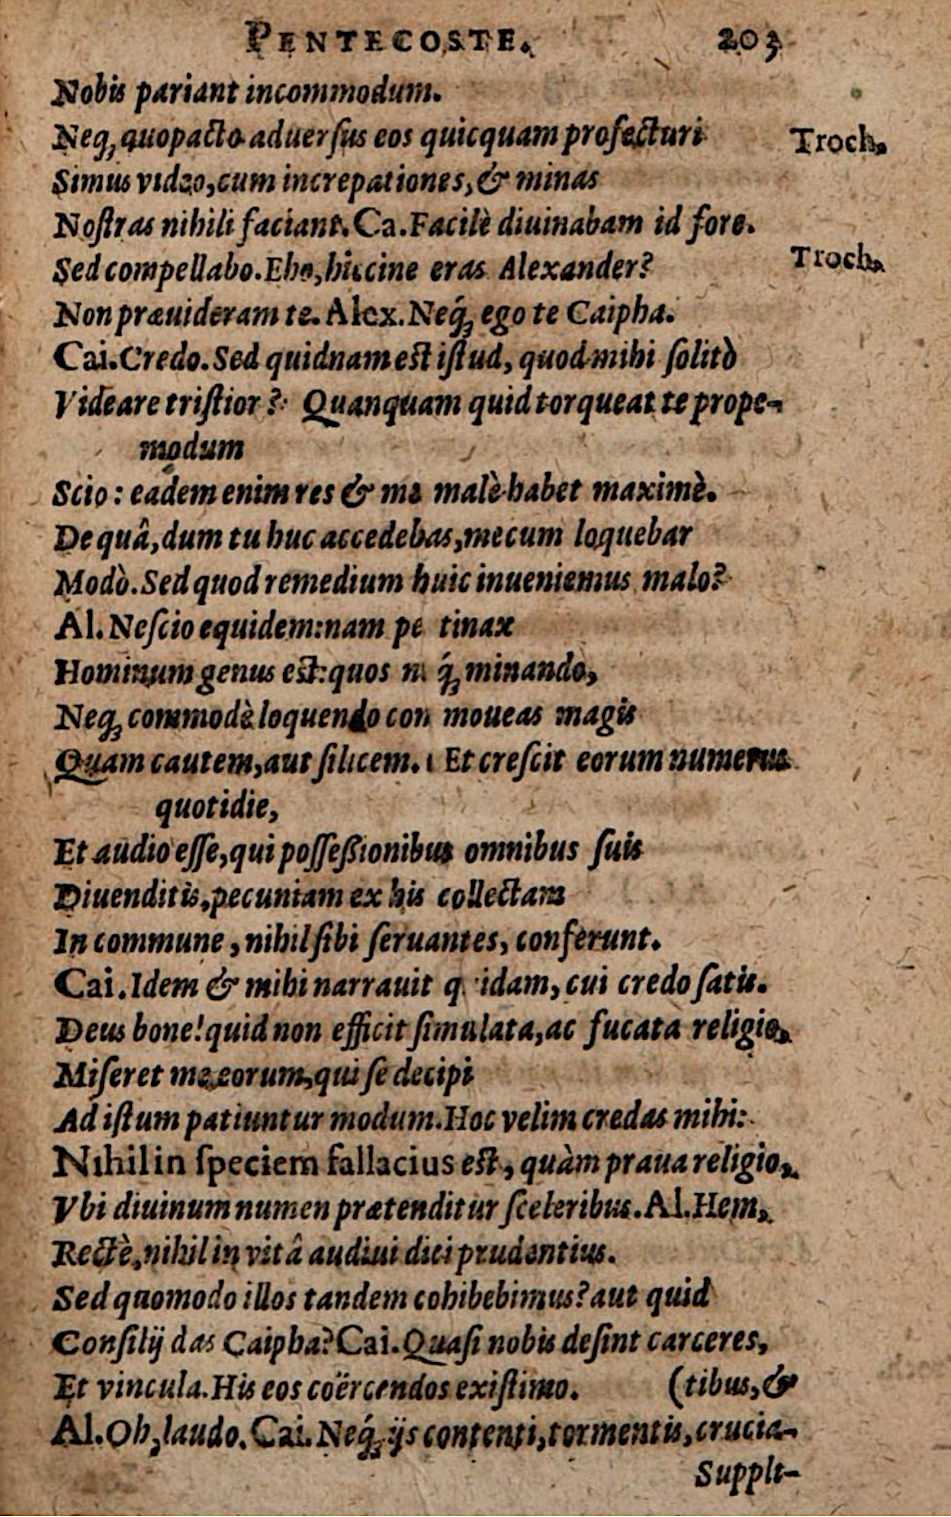 PENTECOSTE. 203
Nobis pariant incommodum.
Neq; quo pacto aduersus eos quicquam profecturi Troch.
Simus video, cum increpationes, & minas
Nostras nihili faciant. Ca. Facilè diuinabam id fore.
Sed compellabo. Eho, huccine eras Alexander? Troch.
Non præuideram te. Alex. Neq́; ego te Caipha.
Cai. Credo. Sed quidnam est istud, quod mihi solitò
Videare tristior? Quanquam quid torqueat te prope-
modum
Scio: eadem enim res & me malè habet maximè.
De quâ, dum tu huc accedebas, mecum loquebar
Modò. Sed quod remedium huic inueniemus malo?
Al. Nescio equidem: nam pe tinax
Hominum genus est: quos n q́; minando,
Neq; commodè loquendo con moueas magis
Quam cautem, aut silicem. Et crescit eorum numerus
quotidie,
Et audio esse, qui possessionibus omnibus suis
Diuenditis, pecuniam ex his collectam
In commune, nihil sibi seruantes, conferunt.
Cai. Idem & mihi narrauit q idam, cui credo satis.
Deus bone! quid non efficit simulata, ac fucata religio.
Miseret me eorum, qui se decipi
Ad istum patiuntur modum. Hoc velim credas mihi:
Nihil in speciem fallacius est, quàm praua religio,
Vbi diuinum numen prætenditur sceleribus. Al. Hem,
Rectè, nihil in vitâ audiui dici prudentius.
Sed quomodo illos tandem cohibebimus? aut quid
Consilij das Caipha? Cai. Quasi nobis desint carceres,
Et vincula. His eos coërcendos existimo. (tibus, &
Al. Oh, laudo. Cai. Neq́; ijs contenti, tormentis, crucia-
Suppli-